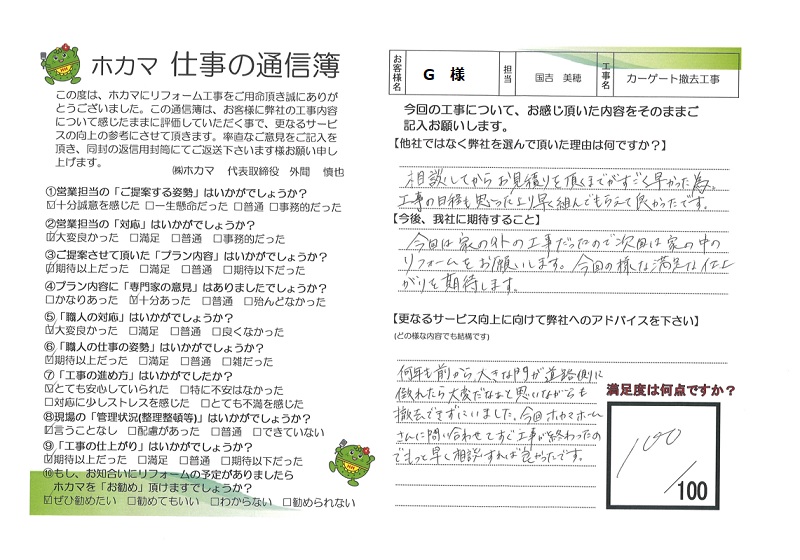 ホカマ 仕事の通信簿
この度は、ホカマにリフォーム工事をご用命頂き誠にありが
とうございました。この通信簿は、お客様に弊社の工事内容
について感じたままに評価していただく事で、更なるサービ
スの向上の参考にさせて頂きます。率直なご意見をご記入を
頂き、同封の返信用封筒にてご返送下さいます様お願い申し
上げます。
㈱ホカマ 代表取締役 外間 慎也
①営業担当の「ご提案する姿勢」はいかがでしょうか？
☑十分誠意を感じた □一生懸命だった □普通 □事務的だった
②営業担当の「対応」はいかがでしょうか？
☑大変良かった □満足 □普通 □事務的だった
③ご提案させて頂いた「プラン内容」はいかがでしょうか？
☑期待以上だった □満足 □普通 □期待以下だった
④プラン内容に「専門家の意見」はありましたでしょうか？
□かなりあった ☑十分あった □普通 □殆んどなかった
⑤「職人の対応」はいかがでしょうか？
☑大変良かった □満足 □普通 □良くなかった
⑥「職人の仕事の姿勢」はいかがでしょうか？
☑期待以上だった □満足 □普通 □雑だった
⑦「工事の進め方」はいかがでしたか？
☑とても安心していられた □特に不安はなかった
□対応に少しストレスを感じた □とても不満を感じた
⑧現場の「管理状況(整理整頓等)」はいかがでしょうか？
☑言うことなし □配慮があった □普通 □できていない
⑨「工事の仕上がり」はいかがでしょうか？
☑期待以上だった □満足 □普通 □期待以下だった
⑩もし、お知合いにリフォームの予定がありましたら
ホカマを「お勧め」頂けますでしょうか？
☑ぜひ勧めたい □勧めてもいい □わからない □勧められない
お客様名 G 様 担当 国吉 美穂 工事名 カーゲート撤去工事
今回の工事について、お感じ頂いた内容をそのままご
記入お願いします。
【他社ではなく弊社を選んで頂いた理由は何ですか？】
相談してからお見積りを頂くまでがすごく早かった為。
工事の日程も思ったより早く組んでもらえて良かったです。
【今後、我社に期待すること】
今回は家の外の工事だったので次回は家の中の
リフォームをお願いします。今回の様な満足な仕上
がりを期待します。
【更なるサービス向上に向けて弊社へのアドバイスを下さい】
(どの様な内容でも結構です)
何年も前から大きな門が道路側に
倒れたら大変だなぁと思いながらも
撤去できずにいました。今回ホカマホーム
さんに問い合わせてすぐ工事が終わったの
でもっと早く相談すれば良かったです。
満足度は何点ですか？
100
/100